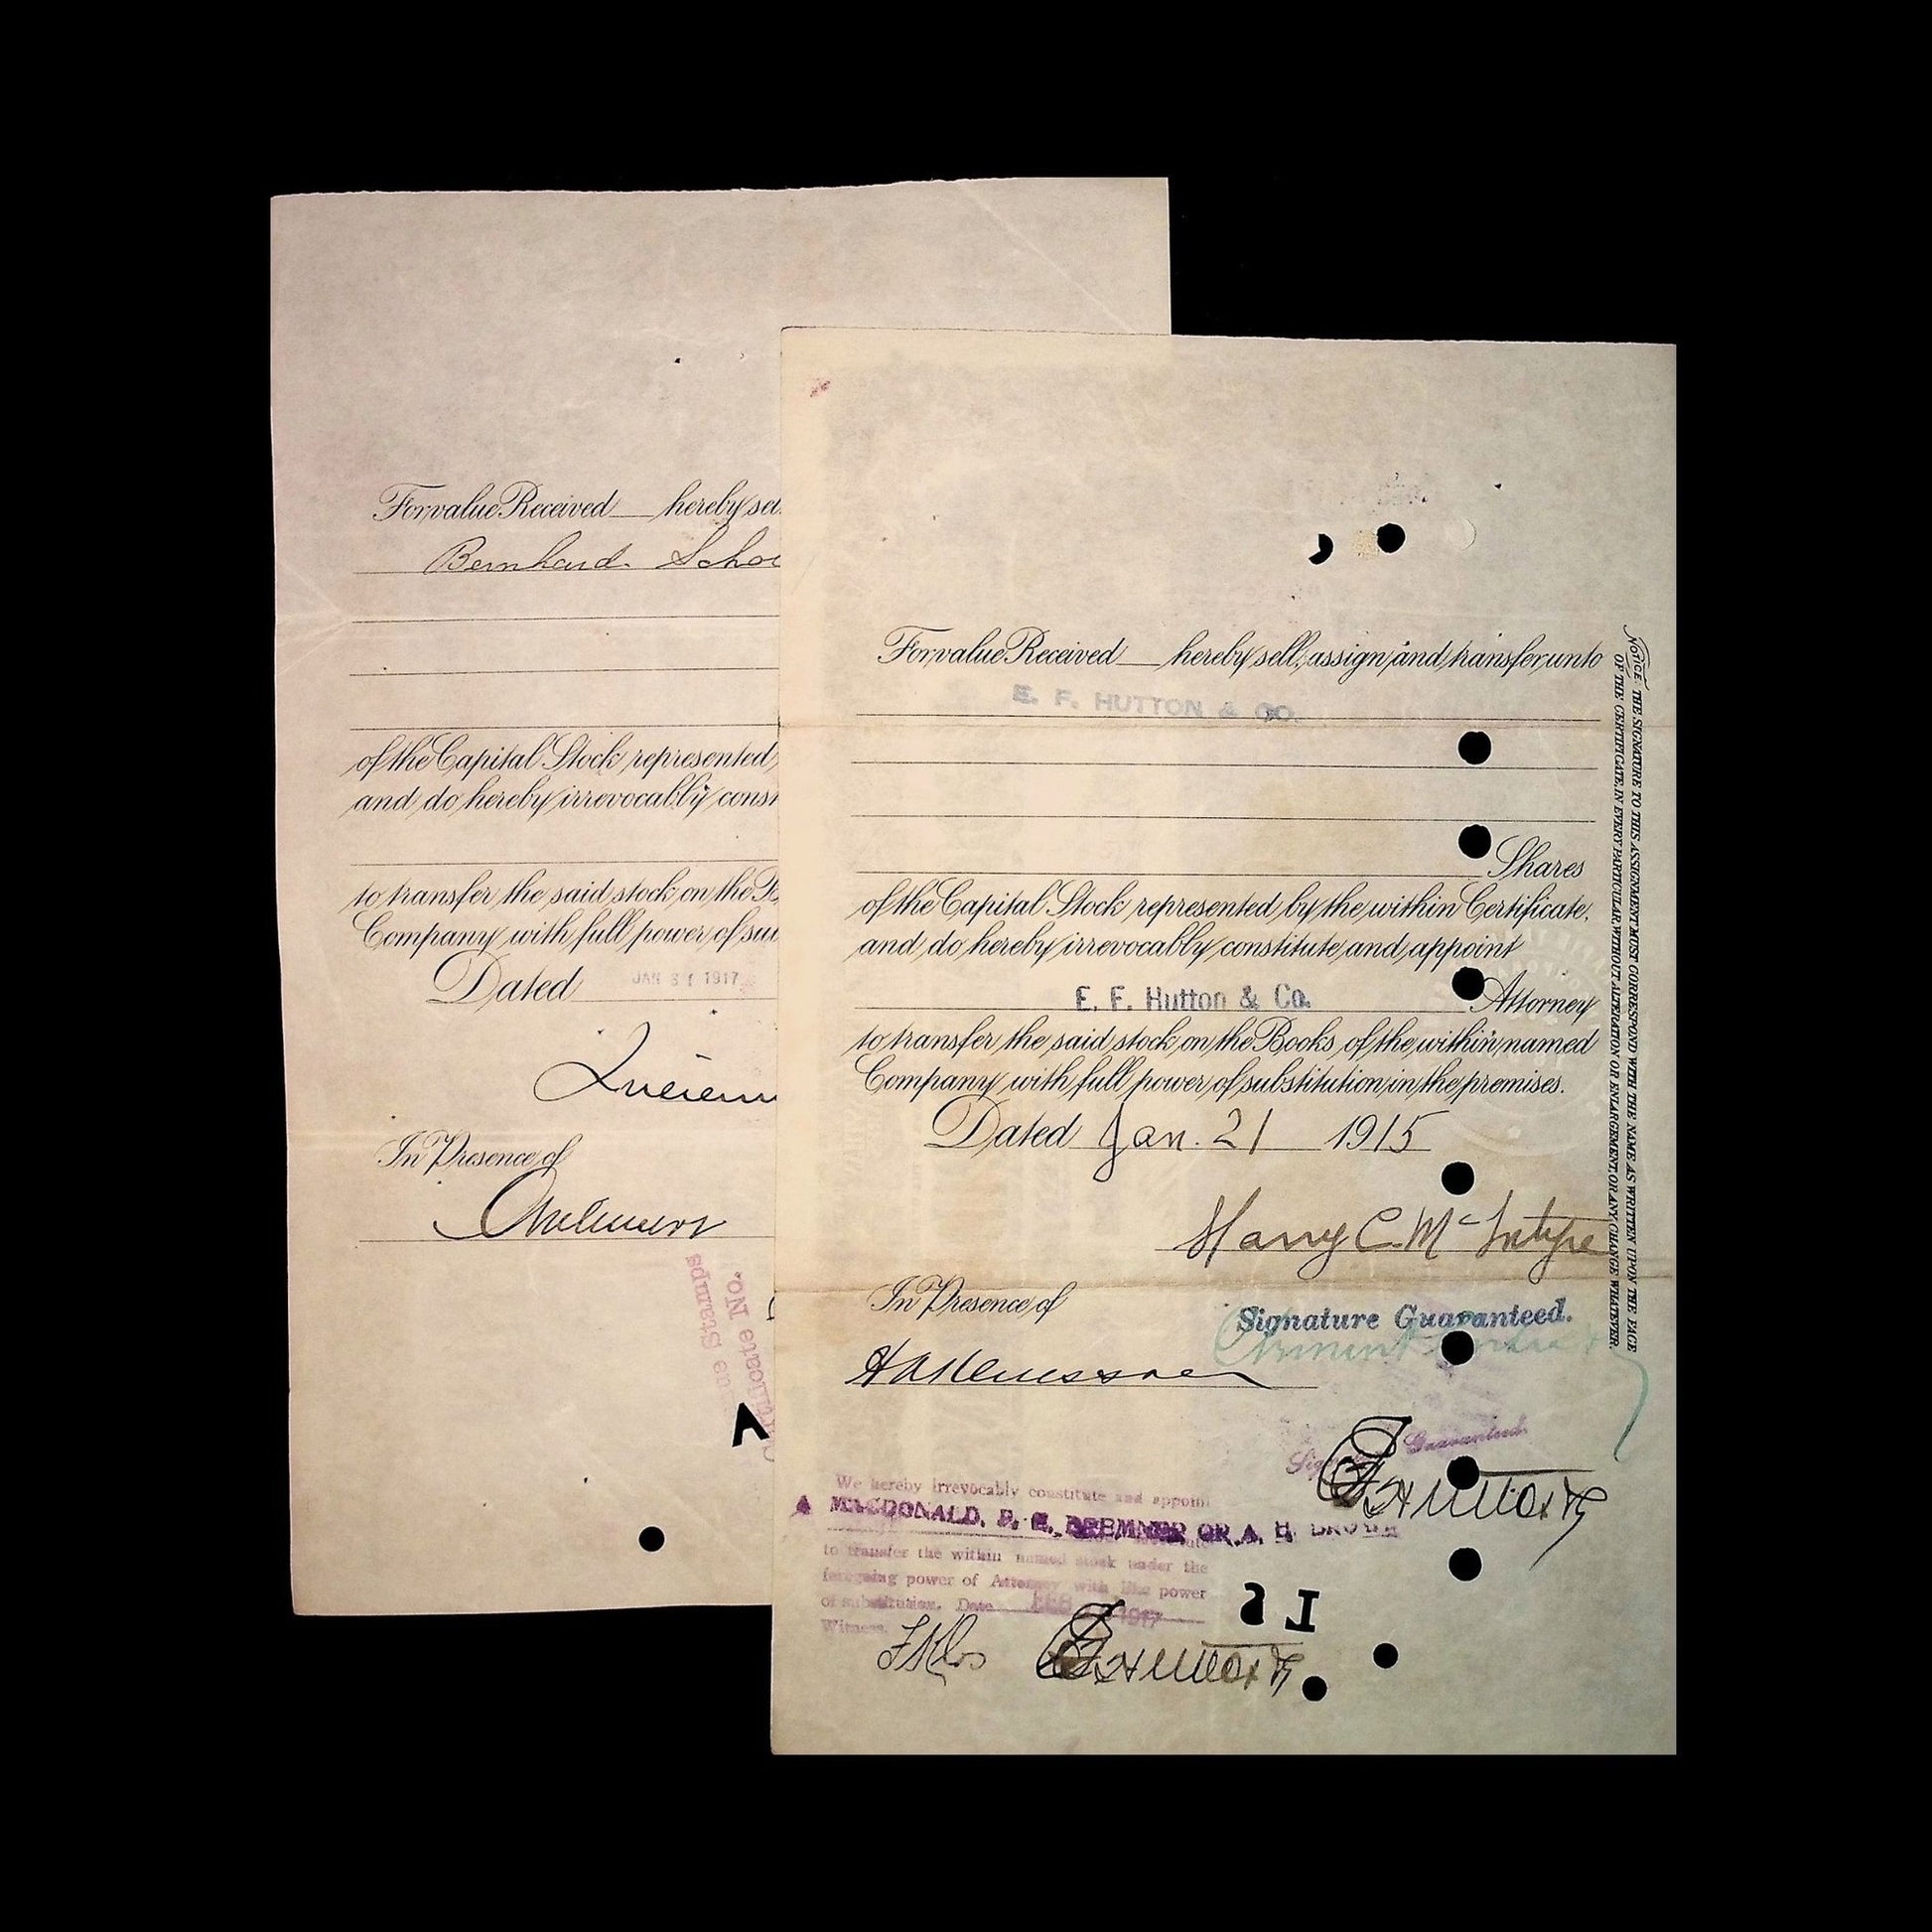 For value Received hereby sel
Bernhard Scho
of the Capital Stock represented
and do hereby irrevocably const
to transfer the said stock on the B
Company with full power of su
Dated JAN 31 1917
Lucien
In Presence of
Stamps
Certificate No.
For value Received hereby sell, assign and transfer unto
E. F. HUTTON & CO.
Shares
of the Capital Stock represented by the within Certificate,
and do hereby irrevocably constitute and appoint
E. F. Hutton & Co. Attorney
to transfer the said stock on the Books of the within named
Company with full power of substitution in the premises.
Dated Jan. 21 1915
Harry C. McIntyre
In Presence of
Signature Guaranteed.
Signature Guaranteed.
We hereby irrevocably constitute and appoint
A MACDONALD, D. G. BREMNER OR A. H. BROWN
to transfer the within named stock under the
foregoing power of Attorney with like power
of substitution. Date FEB 1917
Witness
NOTICE. THE SIGNATURE TO THIS ASSIGNMENT MUST CORRESPOND WITH THE NAME AS WRITTEN UPON THE FACE
OF THE CERTIFICATE, IN EVERY PARTICULAR, WITHOUT ALTERATION OR ENLARGEMENT, OR ANY CHANGE WHATEVER.